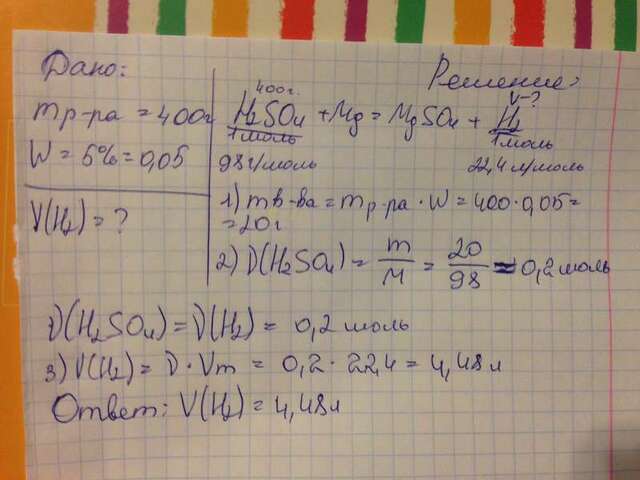 Дано:
mр-ра = 400г
W = 5% = 0,05
V(H₂) = ?
Решение:
400г. V-?
H₂SO₄ + Mg = MgSO₄ + H₂
1моль 1моль
98г/моль 22,4 л/моль
1) mв-ва = mр-ра · W = 400·0,05 =
= 20г
2) ν(H₂SO₄) = m/M = 20/98 = 0,2 моль
ν(H₂SO₄) = ν(H₂) = 0,2 моль
3) V(H₂) = ν · Vm = 0,2 · 22,4 = 4,48 л
Ответ: V(H₂) = 4,48л